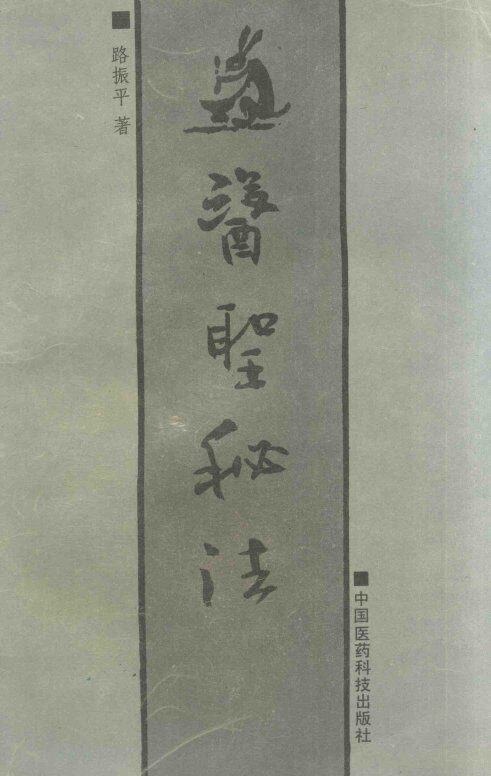 ■路振平 著
醫聖秘法
■中国医药科技出版社